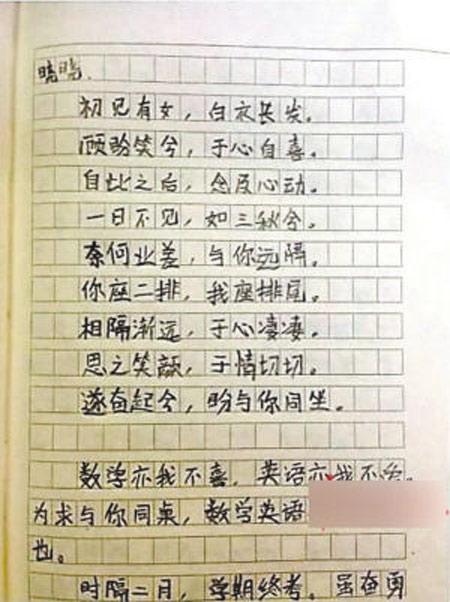 晓晓.
初见有女，白衣长发。
顾盼笑兮，于心自喜。
自此之后，念及心动。
一日不见，如三秋兮。
奈何业差，与你远隔。
你座二排，我座排尾。
相隔渐远，于心凄凄。
思之笑颜，于情切切。
遂奋起兮，盼与你同坐。
数学亦我不喜，英语亦我不
为求与你同桌，数学英语
也。
时隔二月，学期终考。虽奋勇